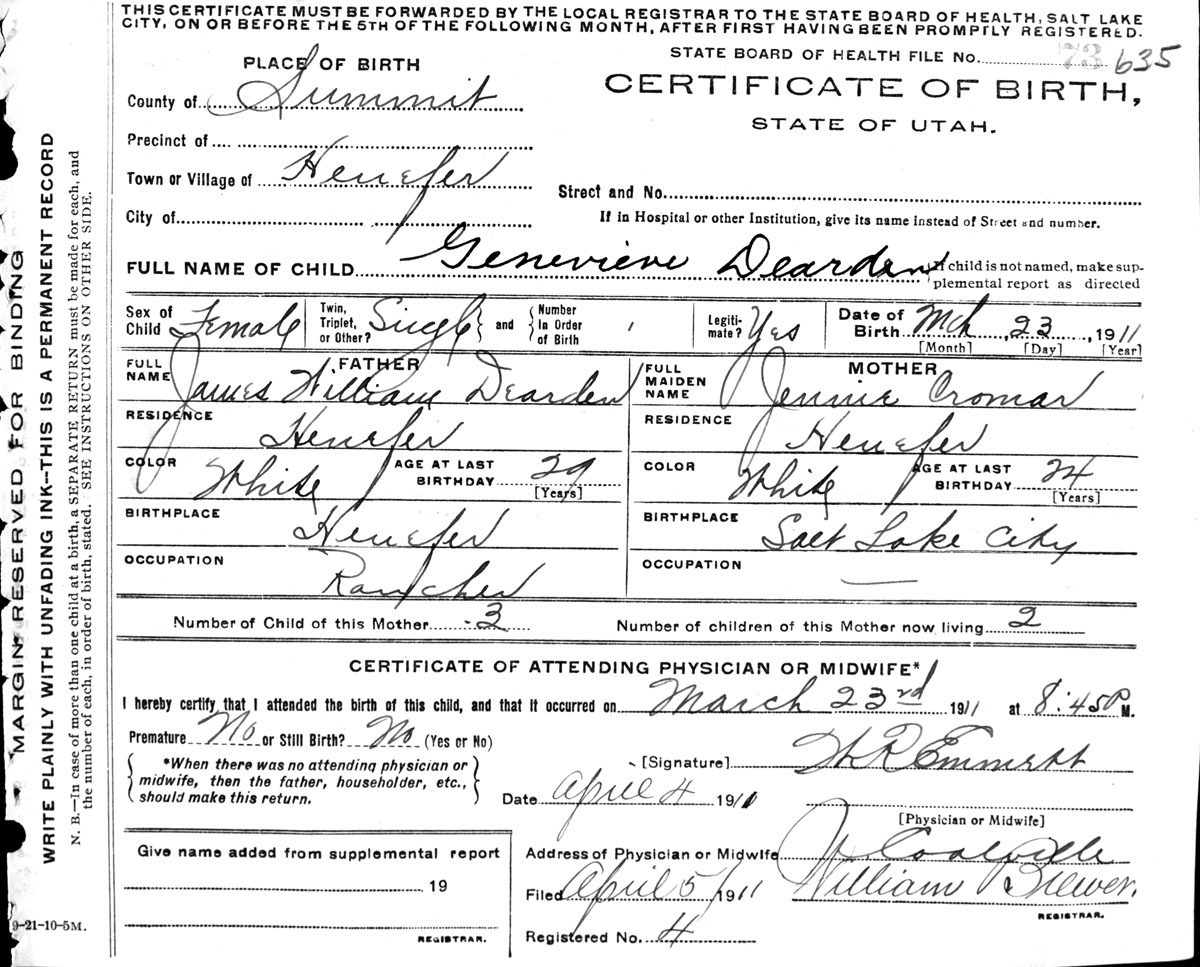 THIS CERTIFICATE MUST BE FORWARDED BY THE LOCAL REGISTRAR TO THE STATE BOARD OF HEALTH, SALT LAKE
CITY, ON OR BEFORE THE 5TH OF THE FOLLOWING MONTH, AFTER FIRST HAVING BEEN PROMPTLY REGISTERED.
STATE BOARD OF HEALTH FILE No. 73 635
PLACE OF BIRTH
CERTIFICATE OF BIRTH,
STATE OF UTAH.
County of Summit
Precinct of
Town or Village of Henefer
Street and No.
City of
If in Hospital or other Institution, give its name instead of Street and number.
FULL NAME OF CHILD Genevieve Dearden
If child is not named, make sup-
plemental report as directed
Sex of Child Female
Twin, Triplet, or Other? Single and Number In Order of Birth
Legiti-mate? Yes
Date of Birth Mch 23, 1911
[Month] [Day] [Year]
FATHER
FULL NAME James William Dearden
RESIDENCE Henefer
COLOR White AGE AT LAST BIRTHDAY 29
[Years]
BIRTHPLACE Henefer
OCCUPATION Rancher
MOTHER
FULL MAIDEN NAME Jennie Cromar
RESIDENCE Henefer
COLOR White AGE AT LAST BIRTHDAY 24
[Years]
BIRTHPLACE Salt Lake City
OCCUPATION —
Number of Child of this Mother 3 Number of children of this Mother now living 2
CERTIFICATE OF ATTENDING PHYSICIAN OR MIDWIFE*
I hereby certify that I attended the birth of this child, and that it occurred on March 23rd 1911 at 8:45 P M.
Premature No or Still Birth? No (Yes or No)
*When there was no attending physician or
midwife, then the father, householder, etc.,
should make this return.
[Signature] Emmett
Date April 4 1911
[Physician or Midwife]
Give name added from supplemental report
19
REGISTRAR.
Address of Physician or Midwife Coalville
Filed April 5 1911 William Brewer.
REGISTRAR.
Registered No. 4
MARGIN RESERVED FOR BINDING
WRITE PLAINLY WITH UNFADING INK—THIS IS A PERMANENT RECORD
N. B.—In case of more than one child at a birth, a SEPARATE RETURN must be made for each, and
the number of each, in order of birth, stated. SEE INSTRUCTIONS ON OTHER SIDE.
9-21-10-5M.